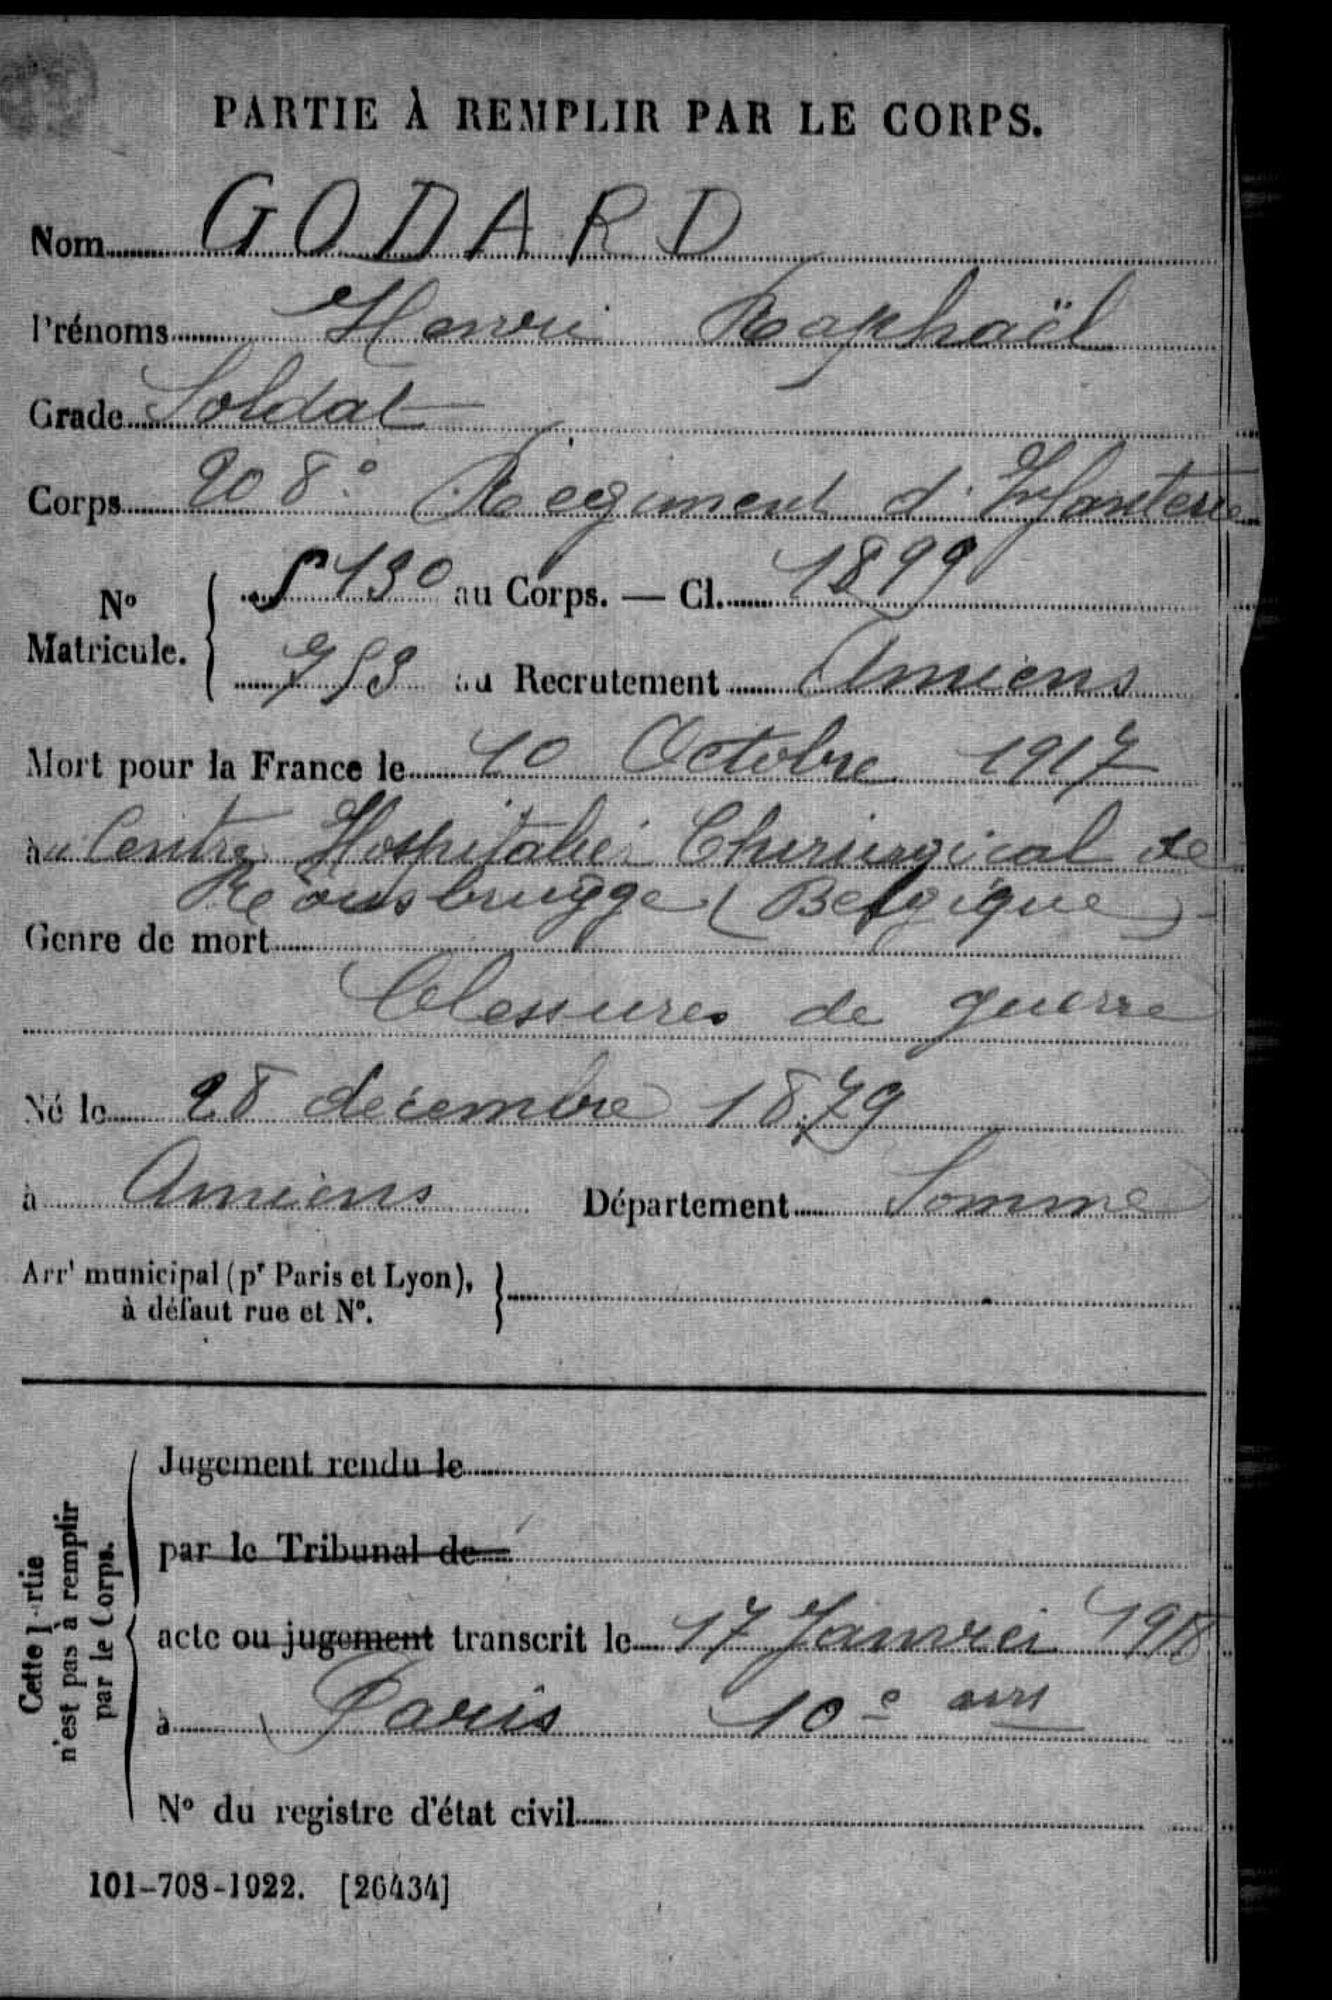 PARTIE À REMPLIR PAR LE CORPS.
Nom GODARD
Prénoms Henri Raphaël
Grade Soldat
Corps 208e Regiment d'Infanterie
N° Matricule. 5130 au Corps. — Cl. 1899
753 au Recrutement Amiens
Mort pour la France le 10 Octobre 1917
à u Centre Hospitalier Chirurgical de
Rousbrugge (Belgique)
Genre de mort
blessures de guerre
Né le 28 decembre 1879
à Amiens Département Somme
Arrt municipal (pr Paris et Lyon),
à défaut rue et N°.
Cette partie n'est pas à remplir par le Corps.
Jugement rendu le
par le Tribunal de
acte ou jugement transcrit le 17 Janvier 1918
à Paris 10e arrt
N° du registre d'état civil
101-708-1922. [26434]